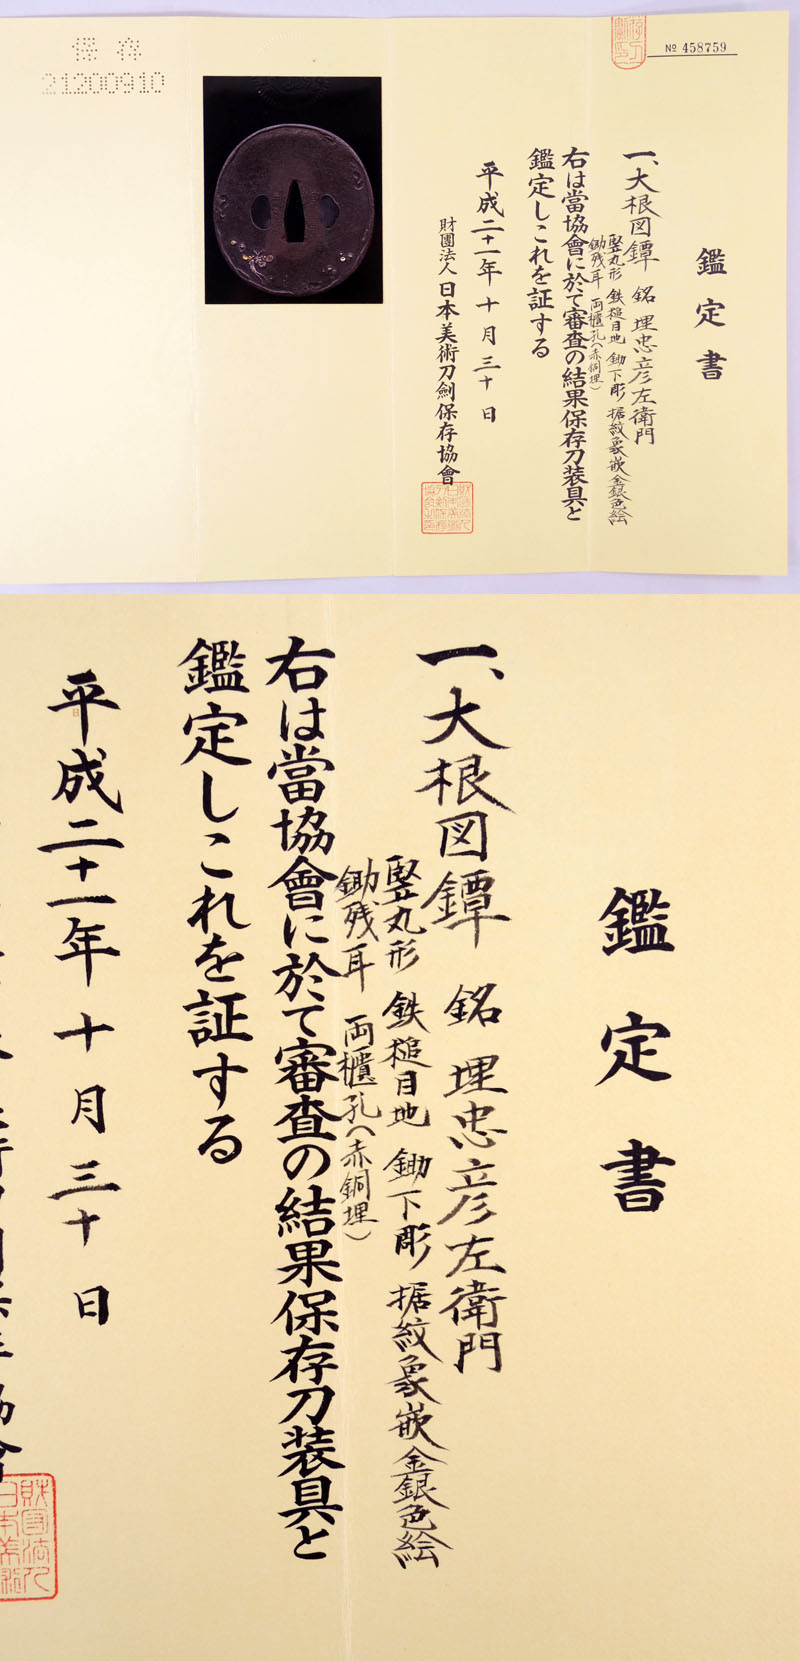 保存
21200910
No 458759
鑑定書
一、大根図鐔 銘 埋忠彦左衛門
竪丸形 鉄槌目地 鋤下彫 据紋象嵌金銀色絵
鋤残耳 両櫃孔(赤銅埋)
右は當協會に於て審査の結果保存刀装具と
鑑定しこれを証する
平成二十一年十月三十日
財團法人日本美術刀劍保存協會
鑑定書
一、大根図鐔 銘 埋忠彦左衛門
竪丸形 鉄槌目地 鋤下彫 据紋象嵌金銀色絵
鋤残耳 両櫃孔(赤銅埋)
右は當協會に於て審査の結果保存刀装具と
鑑定しこれを証する
平成二十一年十月三十日